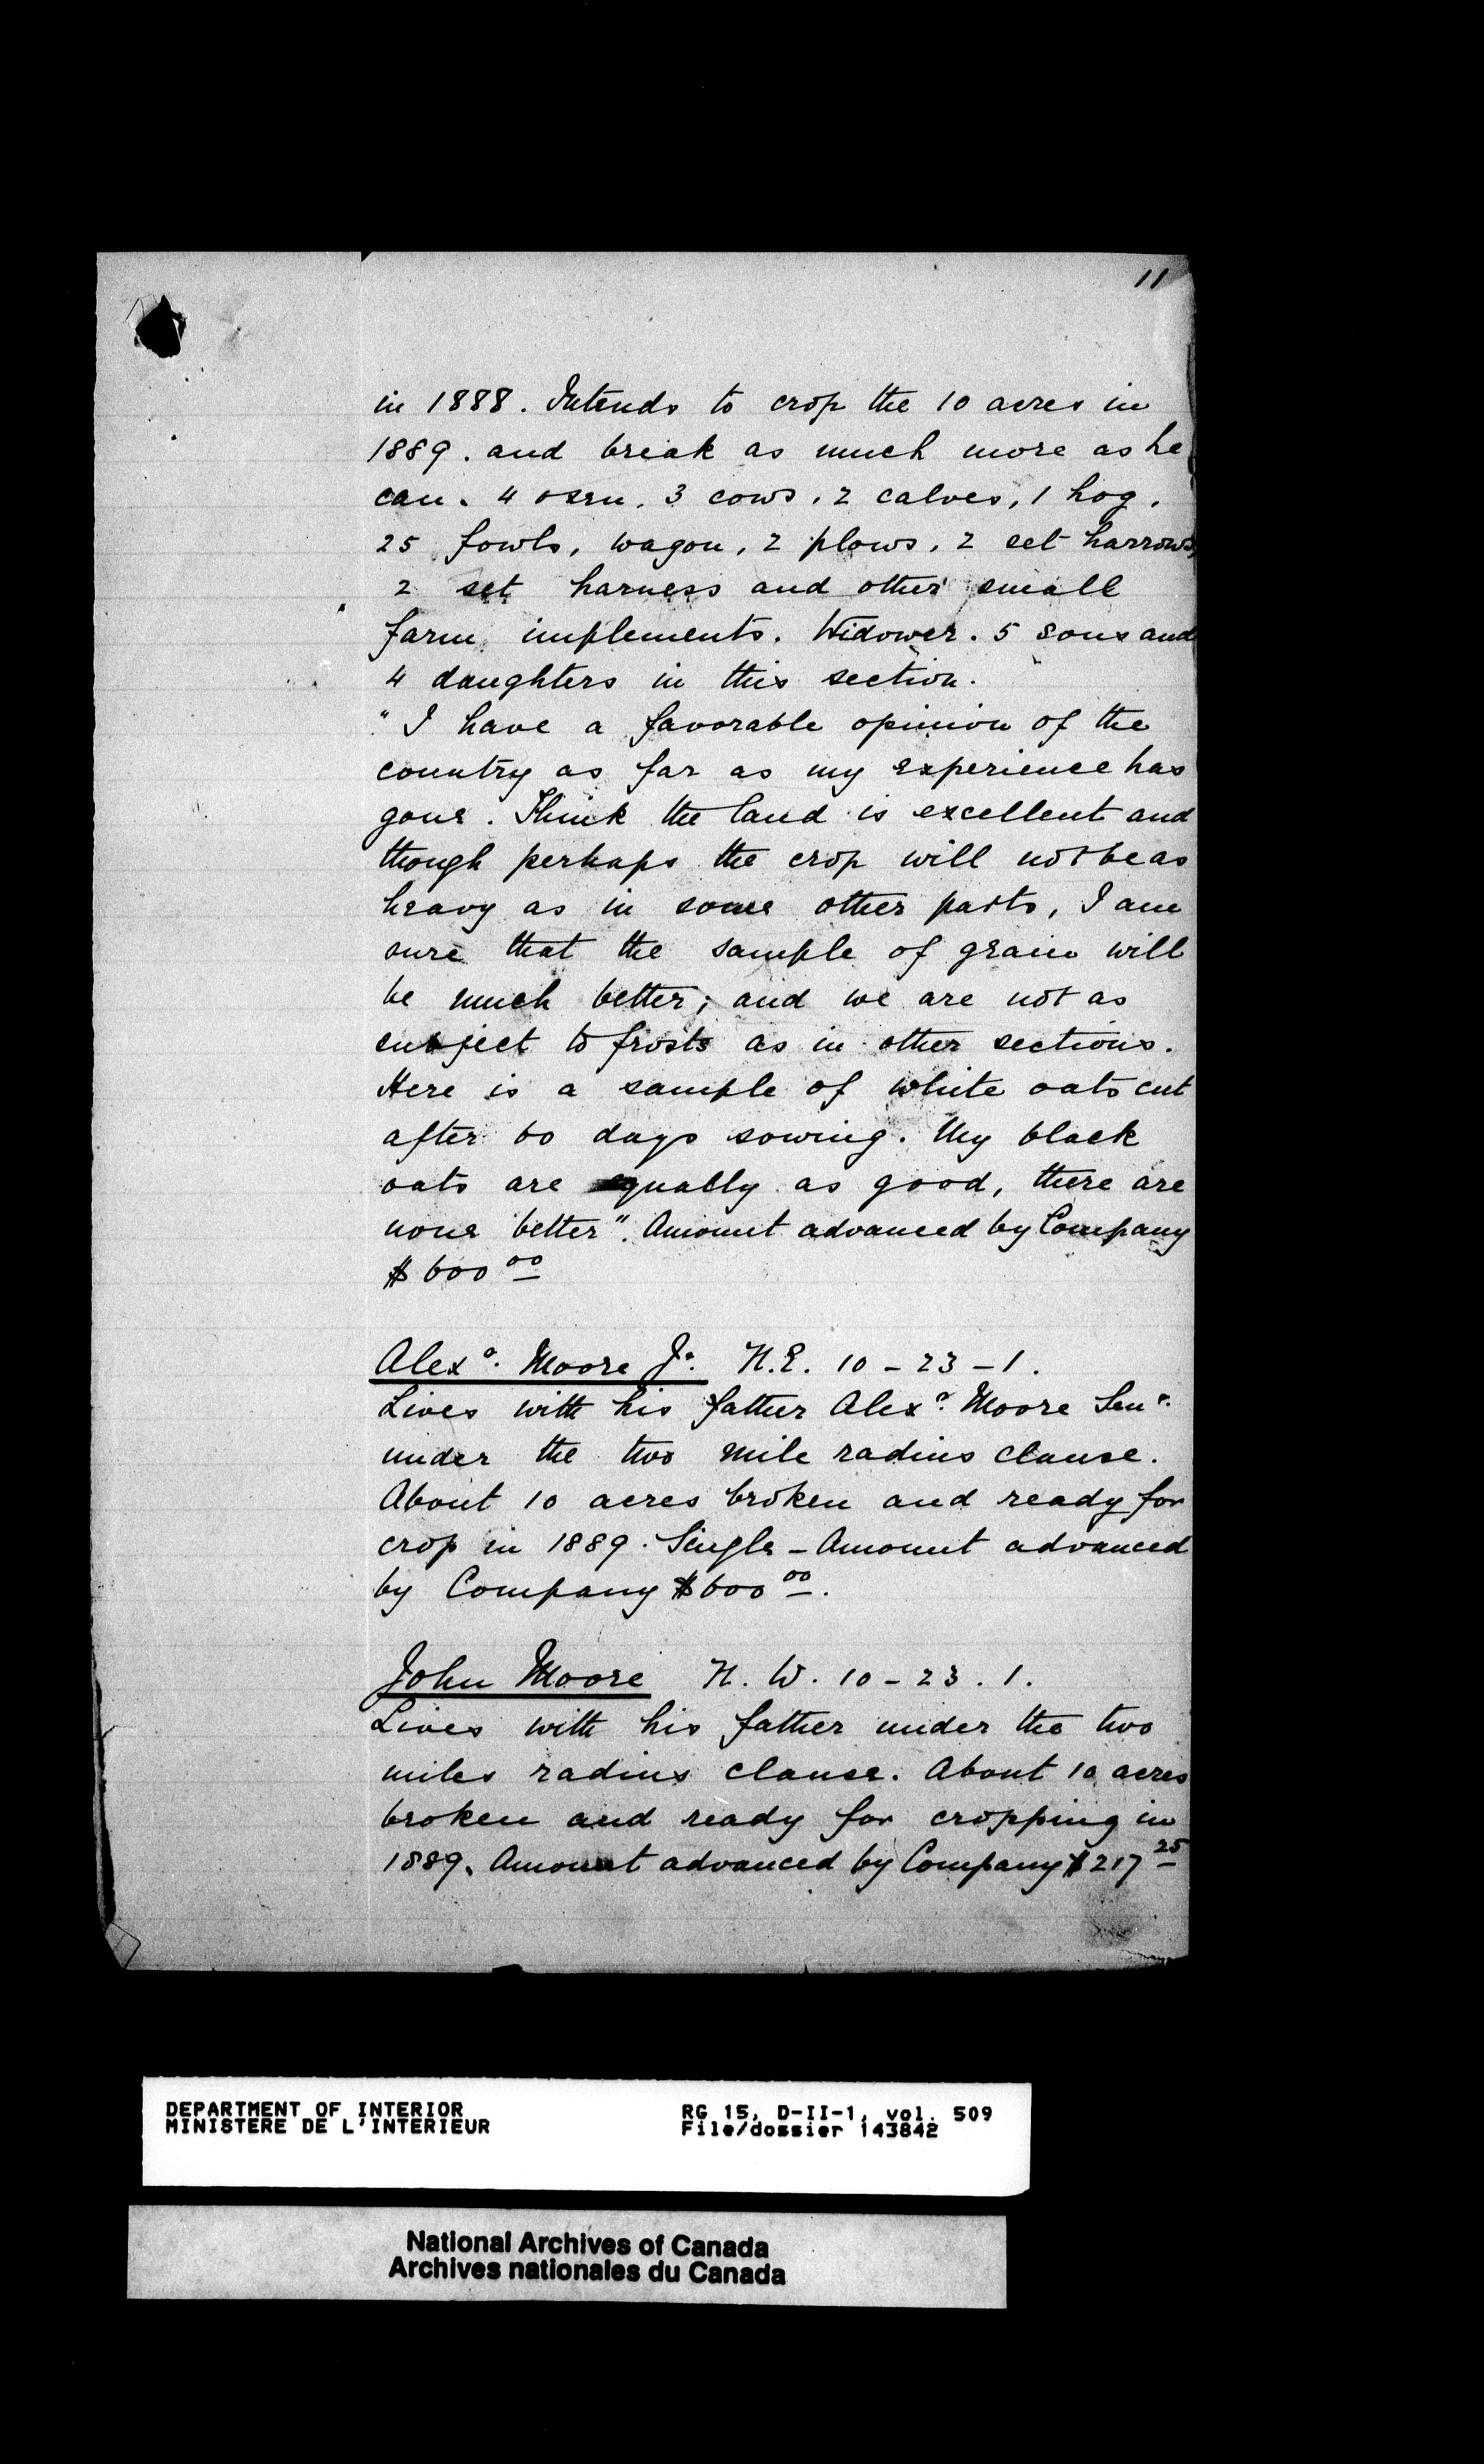 11
in 1888. Intends to crop the 10 acres in
1889. and break as much more as he
can. 4 oxen. 3 cows. 2 calves, 1 hog.
25 fowls, wagon, 2 plows, 2 set harrows,
2 set harness and other small
farm implements. Widower. 5 sons and
4 daughters in this section.
"I have a favorable opinion of the
country as far as my experience has
gone. Think the land is excellent and
though perhaps the crop will not be as
heavy as in some other parts, I am
sure that the sample of grain will
be much better; and we are not as
subject to frosts as in other sections.
Here is a sample of white oats cut
after 60 days sowing. My black
oats are equally as good, there are
none better". Amount advanced by Company
$600 00
Alexr. Moore Jr. N.E. 10-23-1.
Lives with his father Alexr. Moore Senr.
under the two mile radius clause.
About 10 acres broken and ready for
crop in 1889. Single - Amount advanced
by Company $600 00.
John Moore N. W. 10-23.1.
Lives with his father under the two
miles radius clause. About 10 acres
broken and ready for cropping in
1889. Amount advanced by Company $217 25
DEPARTMENT OF INTERIOR RG 15, D-II-1, vol. 509
MINISTERE DE L'INTERIEUR File/dossier 143842
National Archives of Canada
Archives nationales du Canada